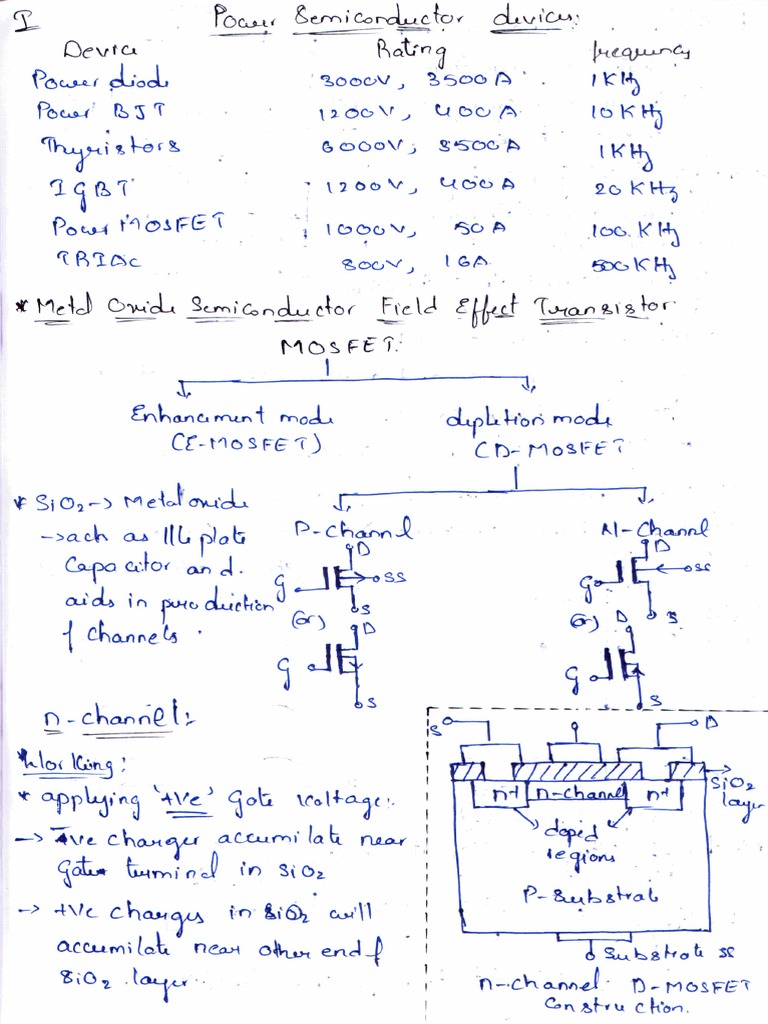 I
Power Semiconductor devices:
Device Rating frequency
Power diode 3000V, 3500A. 1KHz
Power BJT 1200V, 400A 10KHz
Thyristors 6000V, 3500A 1KHz
IGBT 1200V, 400A 20KHz
Power MOSFET 1000V, 50A 100KHz
TRIAC 800V, 16A 500KHz
* Metal Oxide Semiconductor Field Effect Transistor
MOSFET:
Enhancement mode depletion mode
(E-MOSFET) (D-MOSFET
* SiO2 -> Metal oxide
P-Channel N-Channel
-> ach as 11L plate
Capacitor and.
aids in production
of channels.
D D
G SS G SS
S S
(or) D (or) D
G G
S S
n-channel:
Working:
* applying '+ve' gate voltage:
-> -ve charges accumilate near
Gate terminal in SiO2
-> +ve charges in SiO2 will
accumilate near other end of
SiO2 layer.
S D
SiO2
layer
n+ n-channel n+
doped
regions
P-Substrate
Substrate SS
n-channel D-MOSFET
Construction.